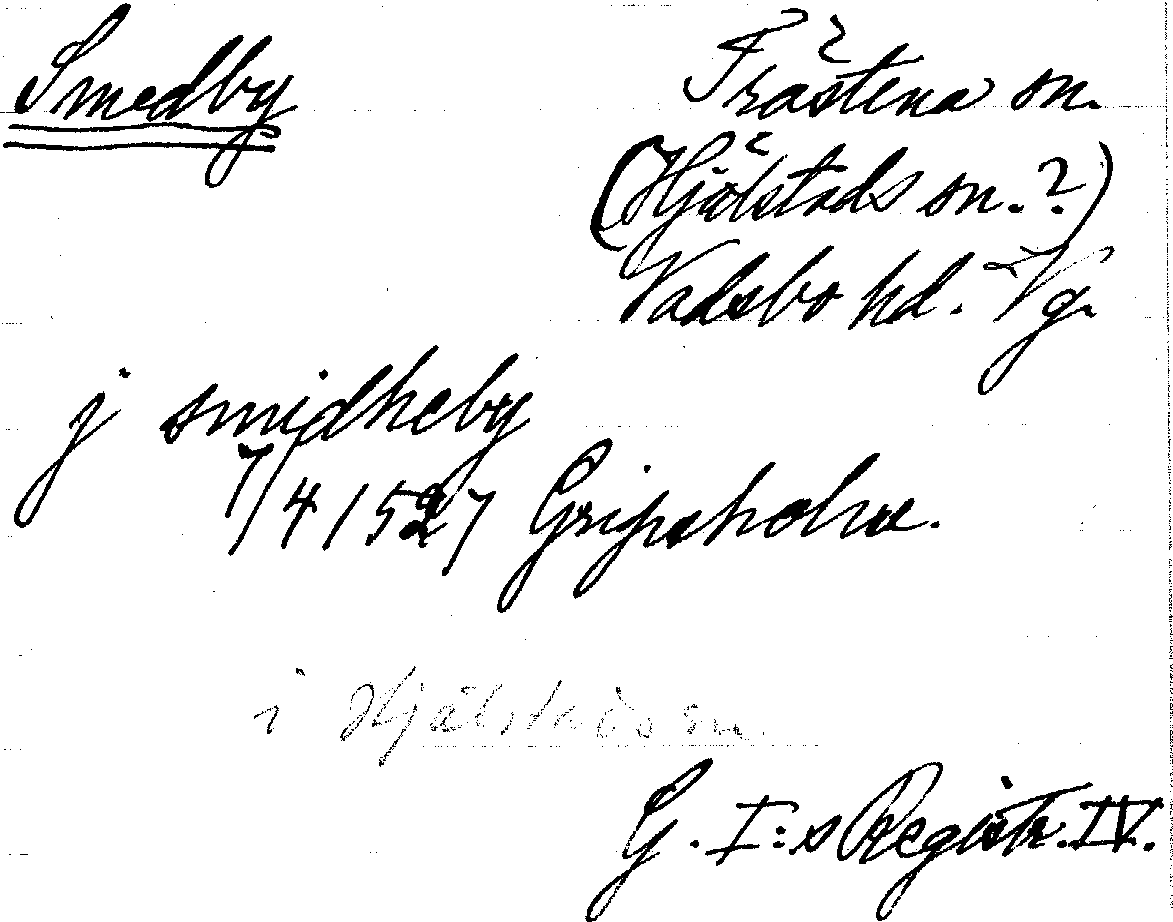 Smedby
Frästena sn.
(Hjälstads sn.?)
Vadsbo hd. Vg.
j smidheby
7/4 1527 Gripsholm.
i Hjälstads sn.
G. I:s Registr. IV.